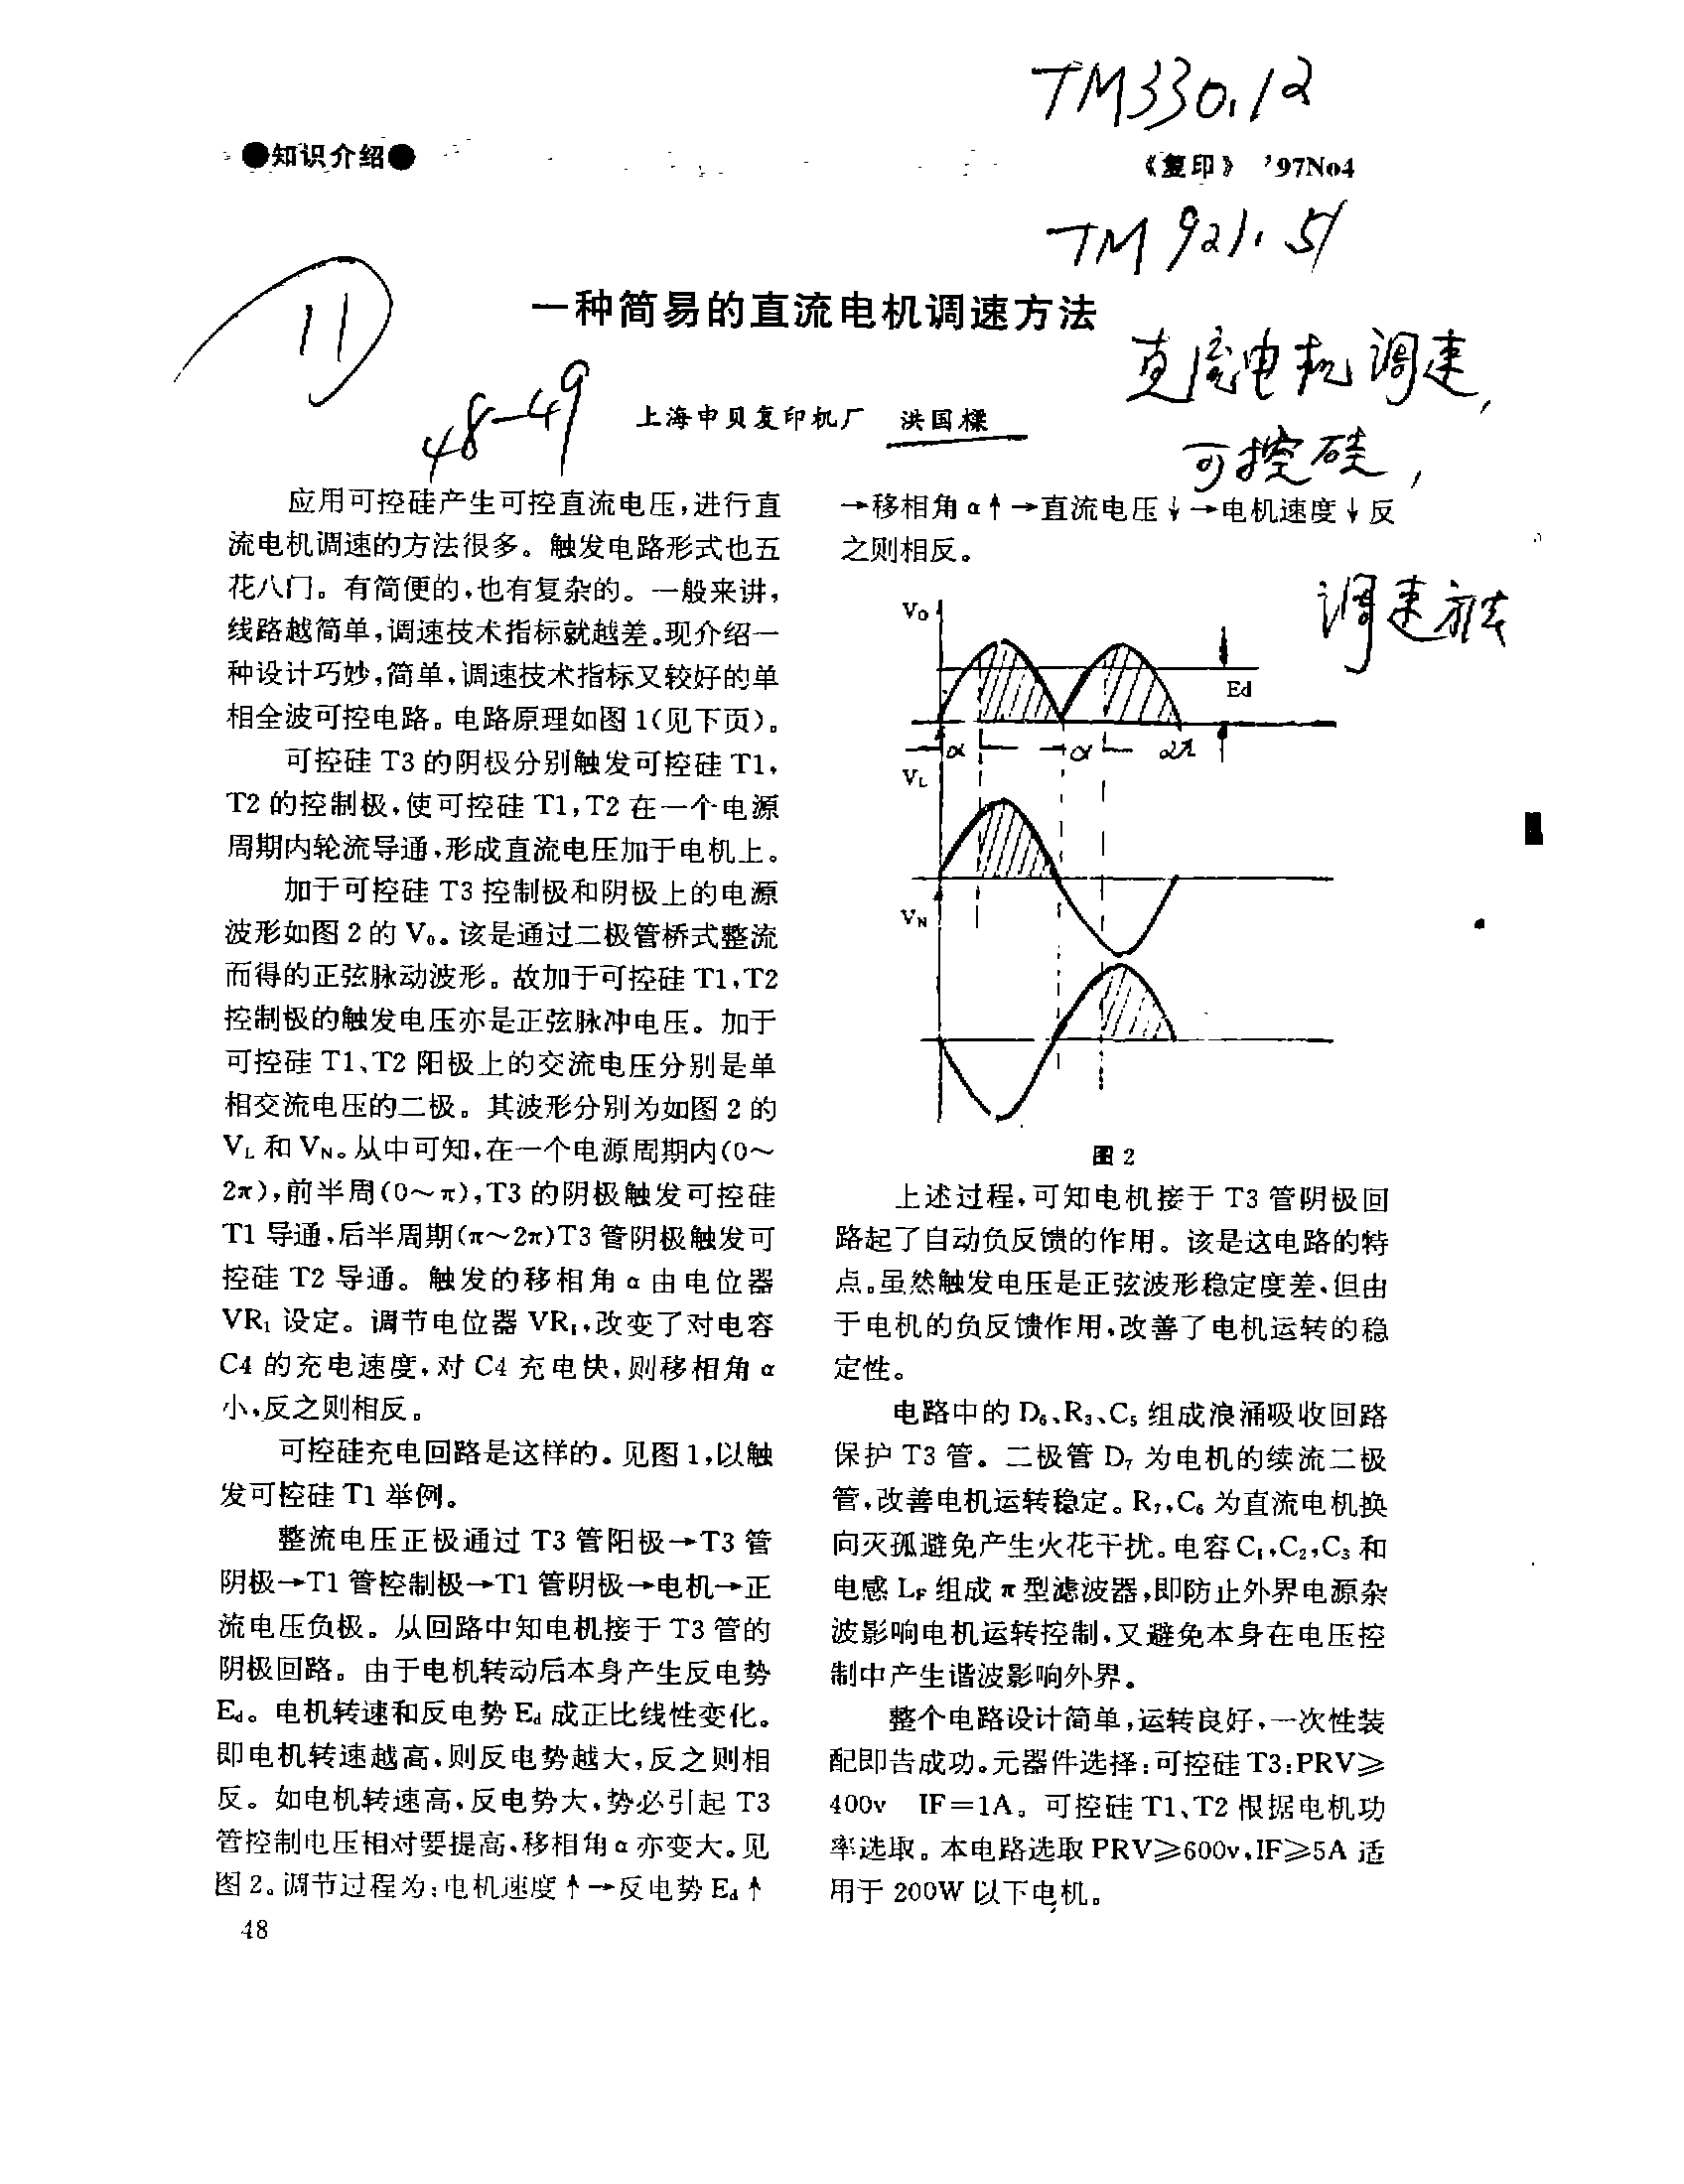 TM330.12
●知识介绍●
《复印》 '97No4
TM921.51
11
一种简易的直流电机调速方法
直流电机调速,
48-49
上海申贝复印机厂 洪国樑
可控硅,
应用可控硅产生可控直流电压,进行直
流电机调速的方法很多。触发电路形式也五
花八门。有简便的,也有复杂的。一般来讲,
线路越简单,调速技术指标就越差。现介绍一
种设计巧妙,简单,调速技术指标又较好的单
相全波可控电路。电路原理如图1(见下页)。
可控硅 T3 的阴极分别触发可控硅 T1,
T2 的控制极,使可控硅 T1,T2 在一个电源
周期内轮流导通,形成直流电压加于电机上。
加于可控硅 T3 控制极和阴极上的电源
波形如图 2 的 V₀。该是通过二极管桥式整流
而得的正弦脉动波形。故加于可控硅 T1,T2
控制极的触发电压亦是正弦脉冲电压。加于
可控硅 T1、T2 阳极上的交流电压分别是单
相交流电压的二极。其波形分别为如图 2 的
VL 和 VN。从中可知,在一个电源周期内(0~
2π),前半周(0~π),T3 的阴极触发可控硅
T1 导通,后半周期(π~2π)T3 管阴极触发可
控硅 T2 导通。触发的移相角 α 由电位器
VR₁ 设定。调节电位器 VR₁,改变了对电容
C4 的充电速度,对 C4 充电快,则移相角 α
小,反之则相反。
可控硅充电回路是这样的。见图 1,以触
发可控硅 T1 举例。
整流电压正极通过 T3 管阳极→T3 管
阴极→T1 管控制极→T1 管阴极→电机→正
流电压负极。从回路中知电机接于 T3 管的
阴极回路。由于电机转动后本身产生反电势
Ed。电机转速和反电势 Ed 成正比线性变化。
即电机转速越高,则反电势越大,反之则相
反。如电机转速高,反电势大,势必引起 T3
管控制电压相对要提高,移相角 α 亦变大。见
图 2。调节过程为:电机速度↑→反电势 Ed↑
48
→移相角 α↑→直流电压↓→电机速度↓反
之则相反。
调速方法
V₀
Ed
α
α
2π
VL
VN
图 2
上述过程,可知电机接于 T3 管阴极回
路起了自动负反馈的作用。该是这电路的特
点。虽然触发电压是正弦波形稳定度差,但由
于电机的负反馈作用,改善了电机运转的稳
定性。
电路中的 D₆、R₃、C₅ 组成浪涌吸收回路
保护 T3 管。二极管 D₇ 为电机的续流二极
管,改善电机运转稳定。R₇,C₆ 为直流电机换
向灭孤避免产生火花干扰。电容 C₁,C₂,C₃ 和
电感 LF 组成 π 型滤波器,即防止外界电源杂
波影响电机运转控制,又避免本身在电压控
制中产生谐波影响外界。
整个电路设计简单,运转良好,一次性装
配即告成功。元器件选择:可控硅 T3:PRV≥
400v IF=1A。可控硅 T1、T2 根据电机功
率选取。本电路选取 PRV≥600v,IF≥5A 适
用于 200W 以下电机。